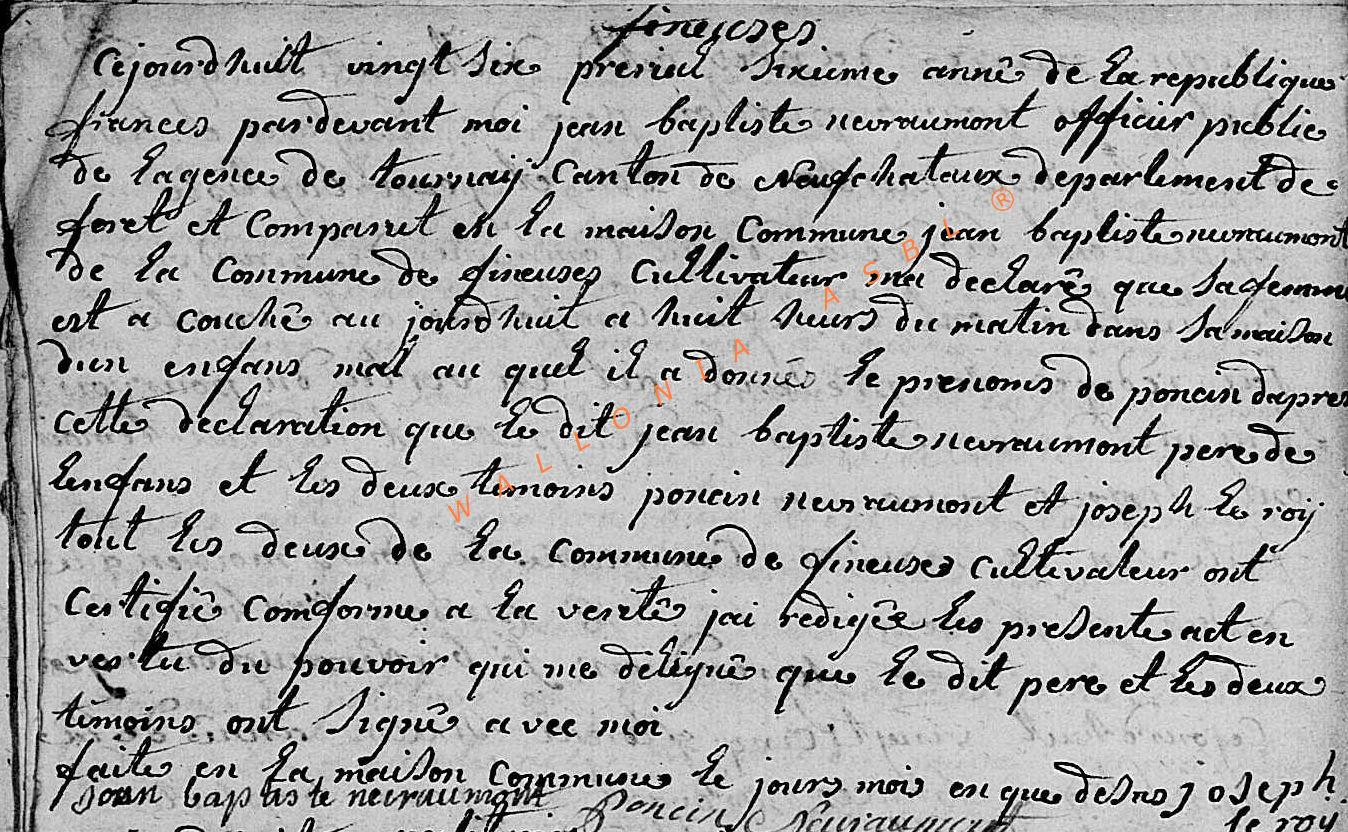 fineuses
Cejourdhuit vingt six prerial sixieme anné de la republique
frances pardevant moi jean baptiste nevraumont officier publie
de lagence de tournaij Canton de Neufchateaux departement de
foret et Comparret en la maison Commune jean baptiste nevraumont
de la Commune de fineuses Cultivateur ma declaré que sa femme
est a couché au jourdhuit a huit heurs du matin dans sa maison
dun enfans mal au quel il a donnés le prenoms de poncin dapres
cette declaration que le dit jean baptiste nevraumont pere de
lenfans et les deux temoins poncin nevraumont et joseph le roij
tout les deux de la Commune de fineuses Cultivateur ont
Certifié Comforme a la verité jai redigée les presente act en
vertu du pouvoir qui me deligué que le dit pere et les deux
temoins ont signé avec moi
faite en la maison Commune le jours mois en que desus joseph
jean baptiste nevraumont Poncin Nevraumont le roy
WALLONIA ASBL ®